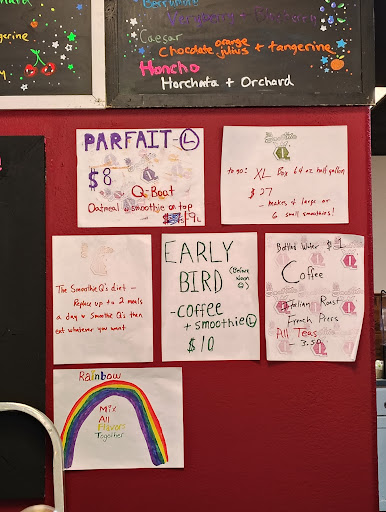 Blueberry
Caesar
orange
Chocolate julius + tangerine
Honcho
Horchata + Orchard
tangerine
PARFAIT - L
$8
Q-Boat
Oatmeal & smoothie on top
to go: XL Box 64 oz half gallon
$27
- makes 4 large or
6 small smoothies!
The Smoothie Q's diet -
Replace up to 2 meals
a day w Smoothie Q's then
eat whatever you want
EARLY
BIRD (Before
Noon
- coffee
+ smoothie L
$10
Bottled Water $1
Coffee
Italian Roast
French Press
All Teas
- 3.50
Rainbow
Mix
All
Flavors
Together